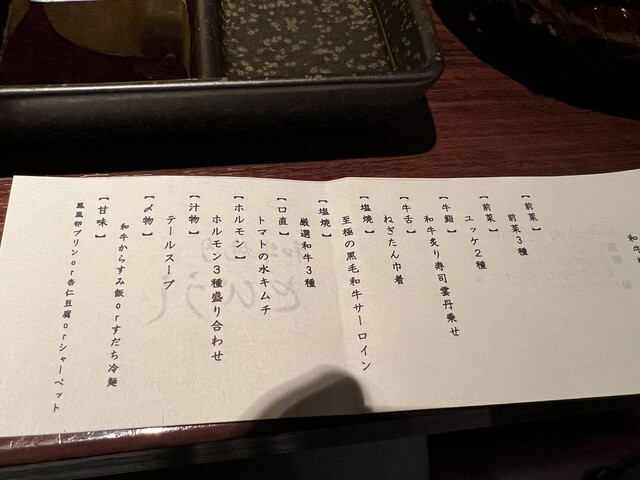 和牛
【前菜】
前菜3種
【前菜】
ユッケ2種
【牛鮨】
和牛炙り寿司雲丹乗せ
【牛舌】
ねぎたん巾着
【塩焼】
至極の黒毛和牛サーロイン
【塩焼】
厳選和牛3種
【口直】
トマトの水キムチ
【ホルモン】
ホルモン3種盛り合わせ
【汁物】
テールスープ
【〆物】
和牛からすみ飯orすだち冷麺
【甘味】
鳳凰卵プリンor杏仁豆腐orシャーベット